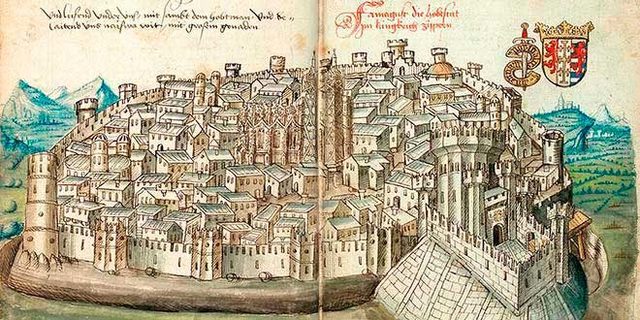 Vnd lifend vnder vns mit sankt dem hobtman vnd be
laitend vns mit grosem genaden
Famagust die hobtstat
Im küngkreich zipern